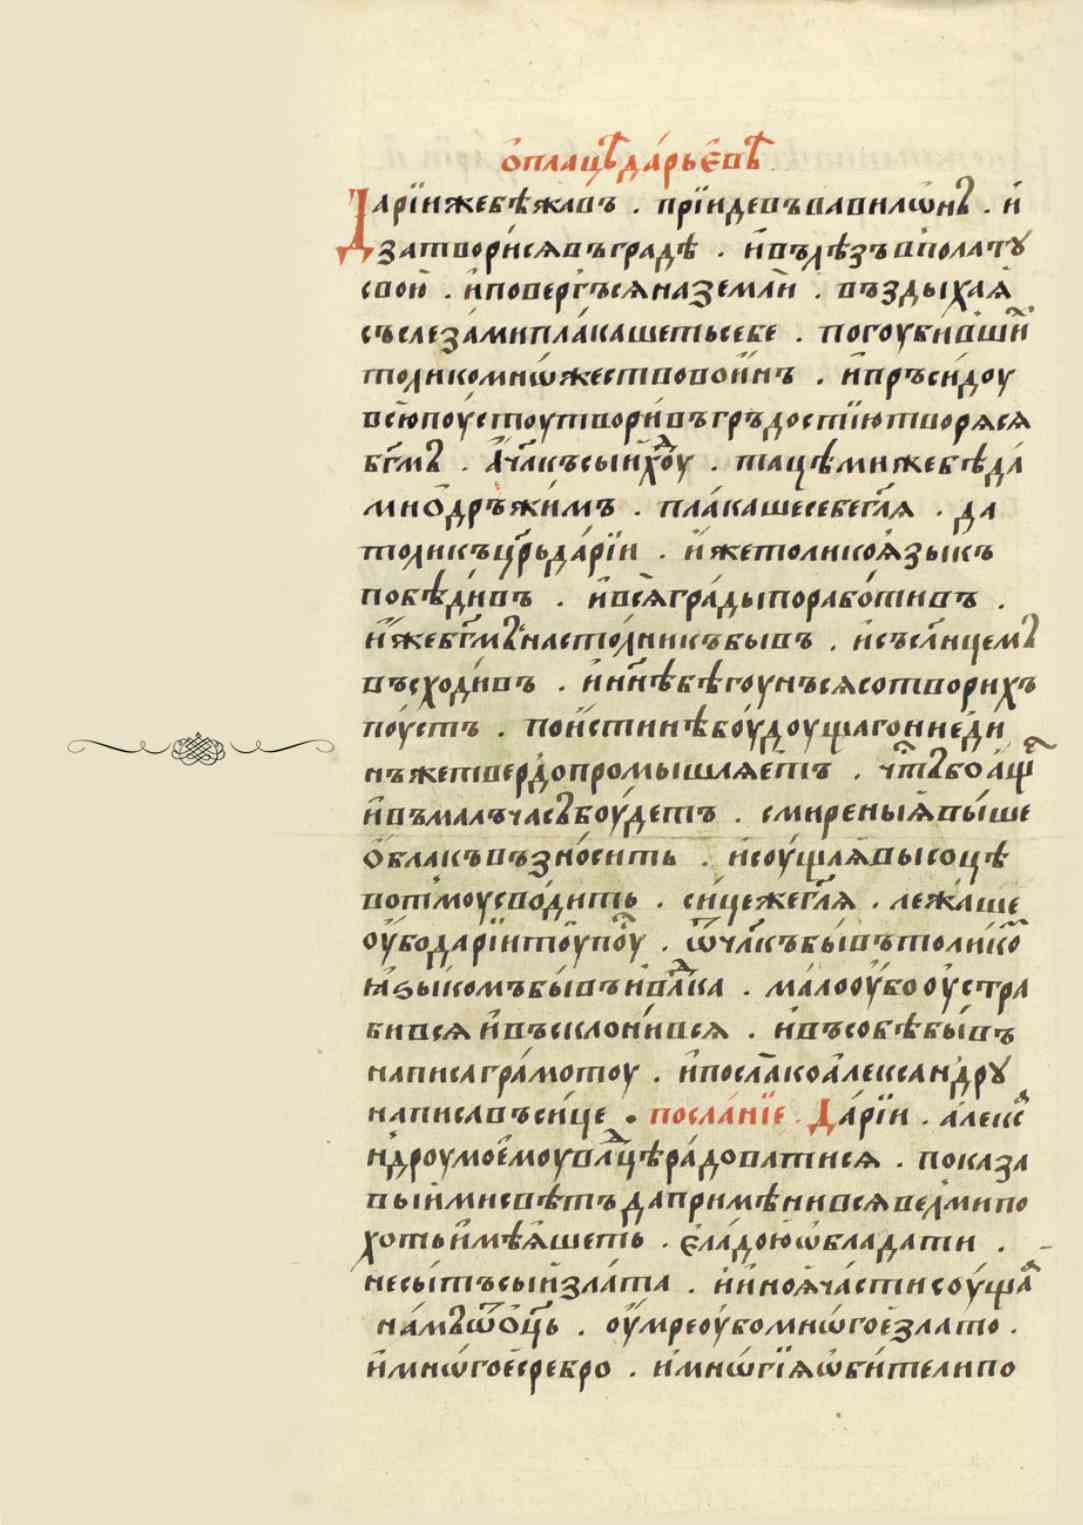 ѡ҆плацѣ дарьевѣ
Дарїи же бѣжавъ . прїиде въ вавилѡнъ . и҆
затвори сѧ въ градѣ . и҆ вълѣзъ в полатꙋ
свою̀ . и҆ повергъ сѧ на земли . въздыхаѧ
съ слезами плакашеть себе . погоубивши
толико мнѡжество воинъ . и҆ пръсидоу
всю поустоу твори въ гръдостїю творѧ сѧ
бг҃мъ . а҆ чл҃къ сыи хоу . тацѣми же бѣда
мнѡ дръжимъ . плакаше себе гл҃ѧ . да
толикъ цр҃ь дарїи . и҆же толико ѧзыкъ
побѣдивъ . и҆ всѧ грады поработивъ .
и҆же бг҃мъ настолникъ бывъ . и҆ съ сл҃нцемъ
въсходивъ . и҆ нн҃ѣ бѣгоунъ сѧ сотворихъ
поустъ . поистинѣ боудоущаго ни еди
нъже твердо промышлѧеть . что бо аще
и҆ въ малъ часъ боудетъ . смиреныѧ выше
облакъ възносить . и҆ соущаѧ высоцѣ
во тмоу сводить . сице же гл҃ѧ . лежаше
оубо дарїи тоу поу . ѿ чл҃къ бывъ толико
ѧзыкомъ бывъ и҆ влдка . мало оубо оустра
бивсѧ и҆ въсклонивсѧ . и҆ въ собѣ бывъ
написа грамотоу . и҆ посла ко александрꙋ
написавъ сице . посланїе . Дарїи . алекса
ндроу моемоу влдцѣ радоватисѧ . показа
выи ми свѣтъ да примѣнивсѧ велми по
хоть имѣѧшеть . еладою ѡбладати .
несытъ сыи злата . и҆ иноѧ части соуща
намъ ѿ оц҃ь . оумре оубо мнѡгое злато .
и҆ мнѡгое сребро . и҆ мнѡгїѧ ѡбители по